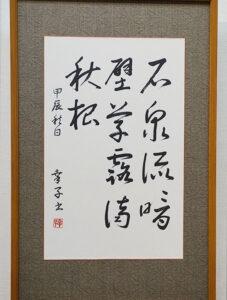 石泉流暗
壁草露滴
秋根
甲辰秋日
子书